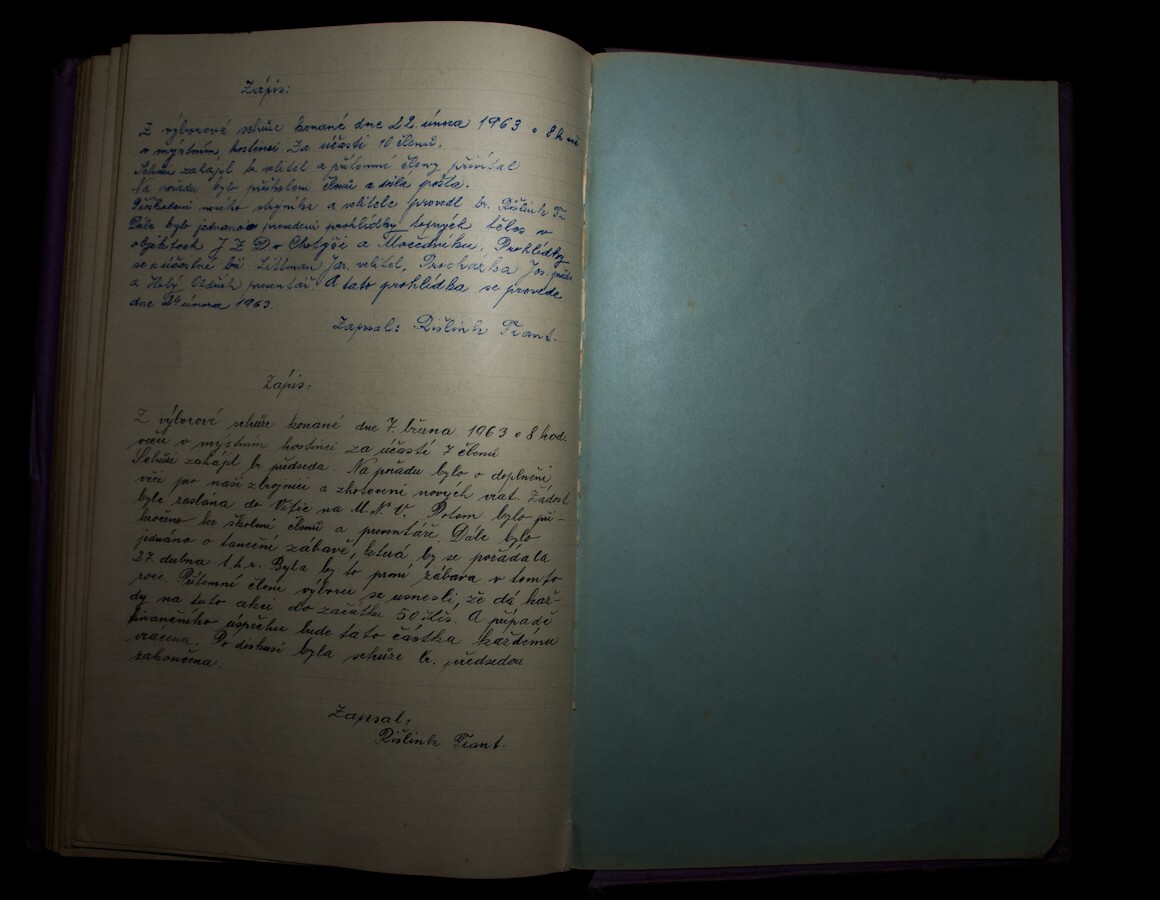 Zápis:
Z výborové schůze konané dne 22. února 1963 o 8 h več
v mýstním hostinci. Za účasti 10 členů.
Schůzi zahájil br. velitel a přítomné členy přivítal
Na pořadu bylo přeškolení členů a došlá pošta.
Přeškolení nového strojníka a velitele provedl br. Rišlink Fr.
Dále bylo jednáno o provedení prohlídky topných těles v
objektech J Z D v Chotýši a Močedníku. Prohlídky
se zúčastní bř. Littman Jar. velitel, Procházka Jos.
a Holý Oldřich preventář. A tato prohlídka se provede
dne 24 února 1963.
Zapsal: Rišlink Frant.
Zápis:
Z výborové schůze konané dne 7. března 1963 o 8 hod.
več v mýstním hostinci za účasti 7 členů
Schůzi zahájil br. předseda. Na pořadu bylo o doplnění
věcí pro naší zbrojnici a zhotovení nových vrat. Žádost
byla zaslána do Vitic na M.N.V. Potom bylo při-
kročeno ke školení členů a preventáře. Dále bylo
jednáno o taneční zábavě, která by se pořádala
27. dubna t.h.r. Byla by to první zábava v tomto
roce. Přítomní členi výboru se usnesli, že dá kaž-
dý na tuto akci do začátku 50 Kčs. A případě
finančního úspěchu bude tato částka každému
vrácena. Po diskusi byla schůze br. předsedou
zakončena.
Zapsal:
Rišlink Frant.